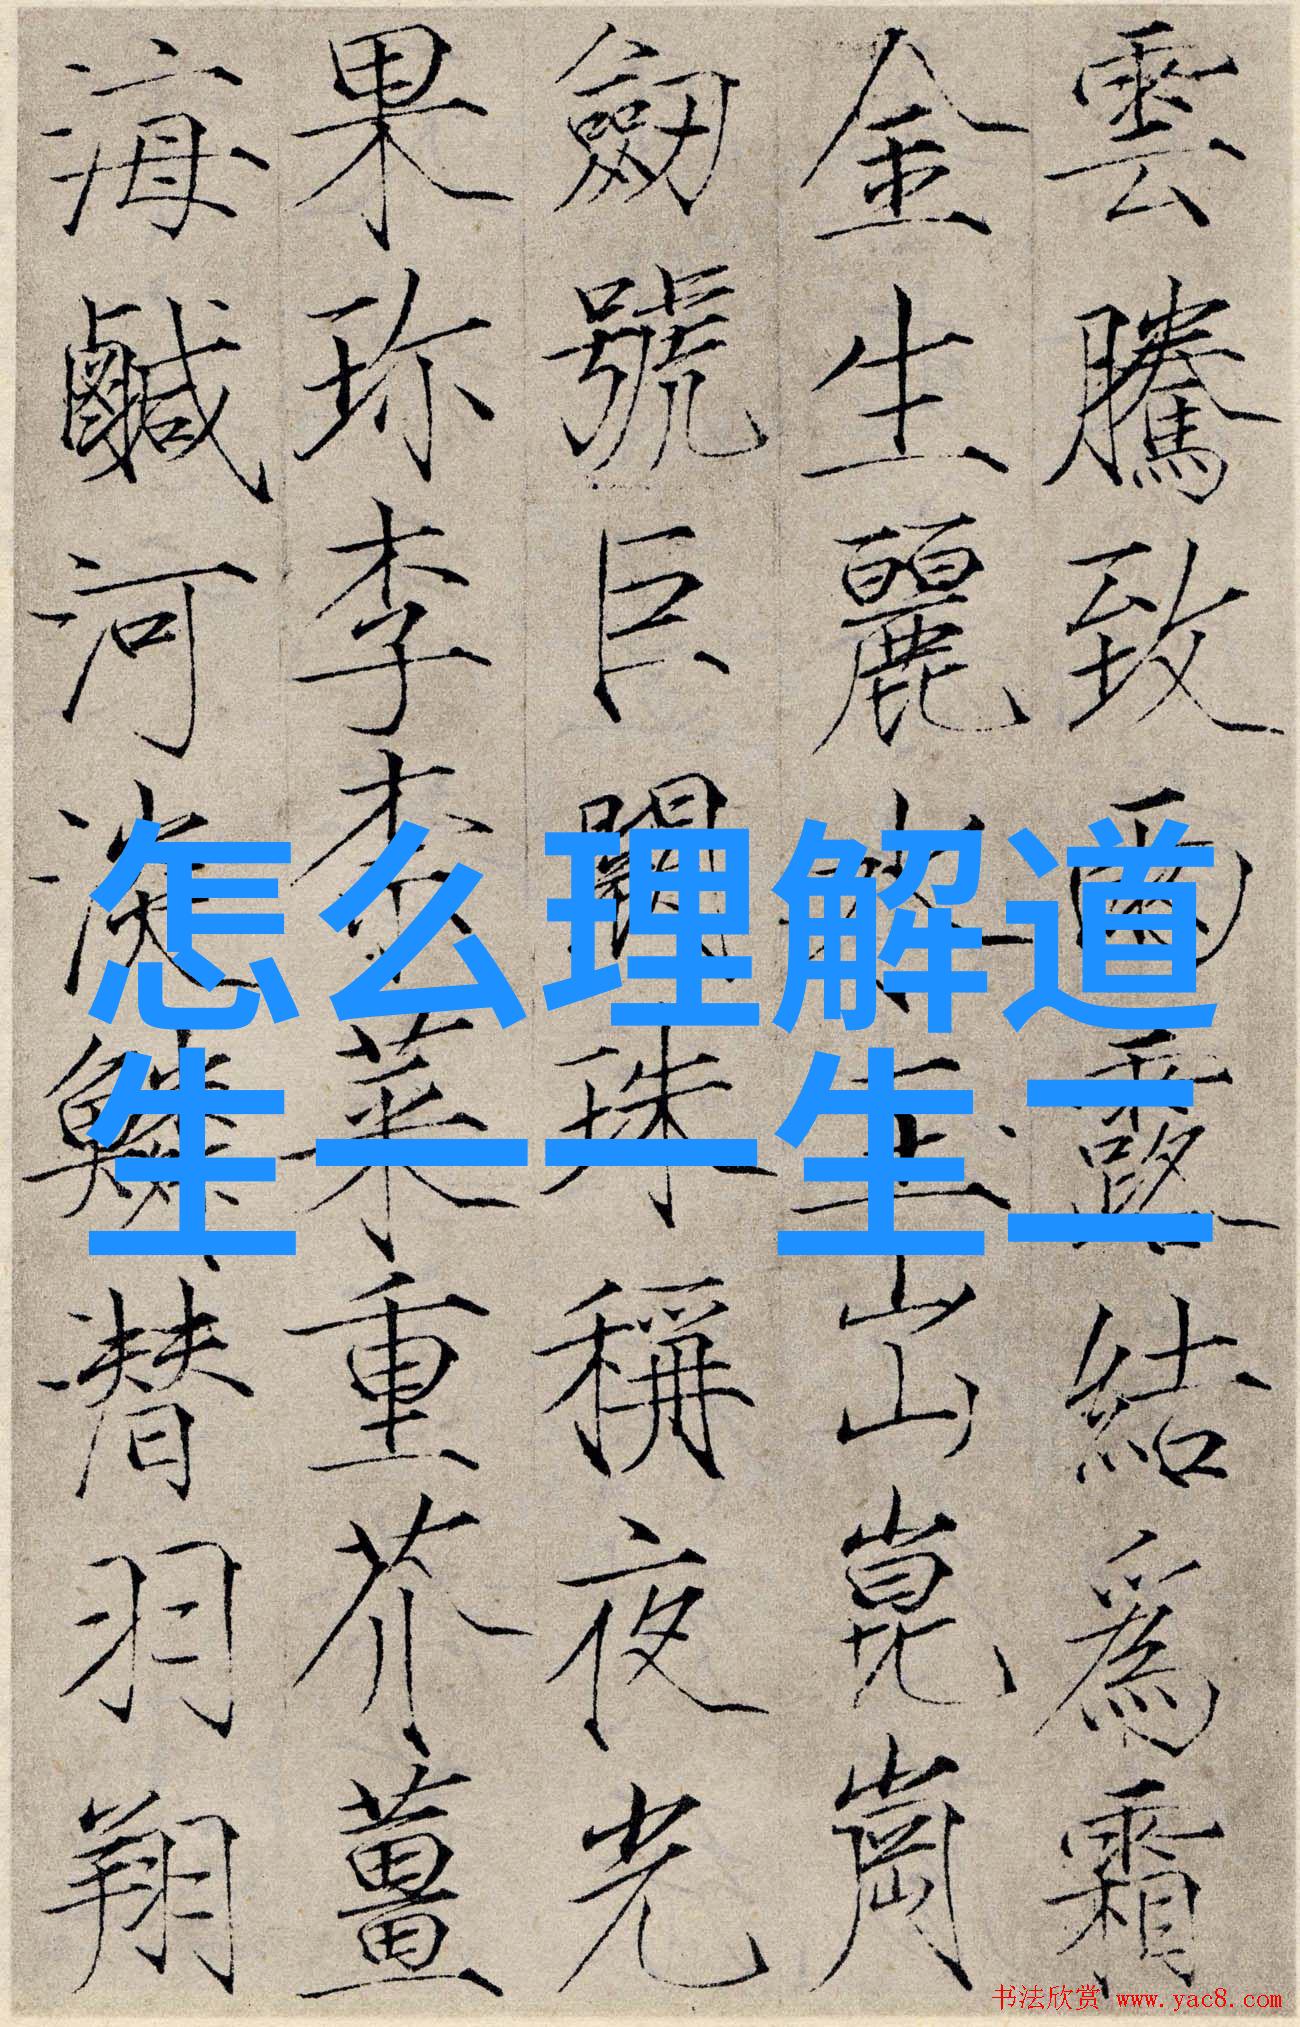 雲騰致雨露結爲霜
金生麗水玉出崑崗
劒號巨闕珠稱夜光
果珎李柰菜重芥薑
海鹹河淡鱗潜羽翔
怎么理解道
生一一生二
书法欣赏 www.yac8.com